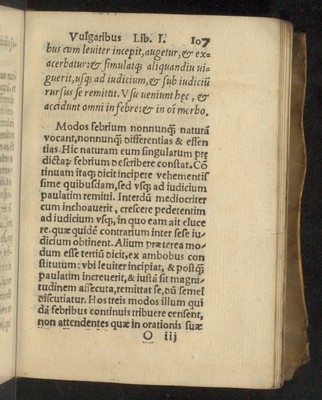 Vulgaribus Lib. I. 107
bus cum leuiter incepit, augetur, & ex=
acerbatur: & simulatq; aliquandiu ui=
guerit, usq; ad iudicium, & sub iudiciũ
rursus se remittit. Vsu ueniunt hęc, &
accidunt omni in febre: & in oĩ morbo.
Modos febrium nonnunq̃ naturã
vocant, nonnunq̃ differentias & essen
tias. Hic naturam eum singularum prę
dictarum febrium describere constat. Cõ
tinuam itaq; dicit incipere vehementis
sime quibusdam, sed vsq; ad iudicium
paulatim remitti. Interdũ mediocriter
cum inchoauerit, crescere pedetentim
ad iudicium vsq;, in quo eam ait eluce
re. quæ quidẽ contrarium inter sese iu
dicium obtinent. Alium præterea mo-
dum esse tertiũ dicit, ex ambobus con
stitutum: vbi leuiter incipiat, & postq̃
paulatim increuerit, & iustã sit magni-
tudinem assecuta, remittat se, dũ semel
discutiatur. Hos treis modos illum qui
dã febribus continuis tribuere censent,
non attendentes quæ in orationis suæ
O iij